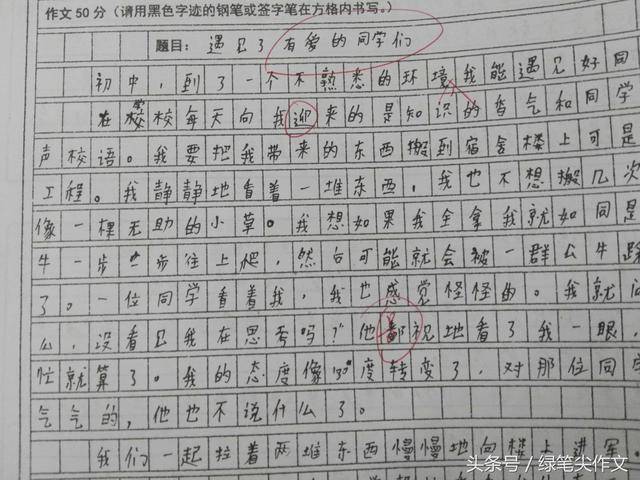 作文50分（请用黑色字迹的钢笔或签字笔在方格内书写。）
题目：遇见了有爱的同学们
初中，到了一个不熟悉的环境我能遇见好同
在学校每天向我迎来的是知识的香气和同学
声校语。我要把我带来的东西搬到宿舍楼上可是
工程。我静静地看着一堆东西，我也不想搬几次
像一棵无助的小草。我想如果我全拿我就如同是
牛一步一步往上爬，然后可能就会被一群公牛踩
了。一位同学看着我，我也感觉怪怪的。我就问
么，没看见我在思考吗？”他鄙视地看了我一眼，
忙就算了。我的态度像度转变了，对那位同
气气的，他也不说什么了。
我们一起拉着两堆东西慢慢地向楼上进军。
头条号／绿笔尖作文